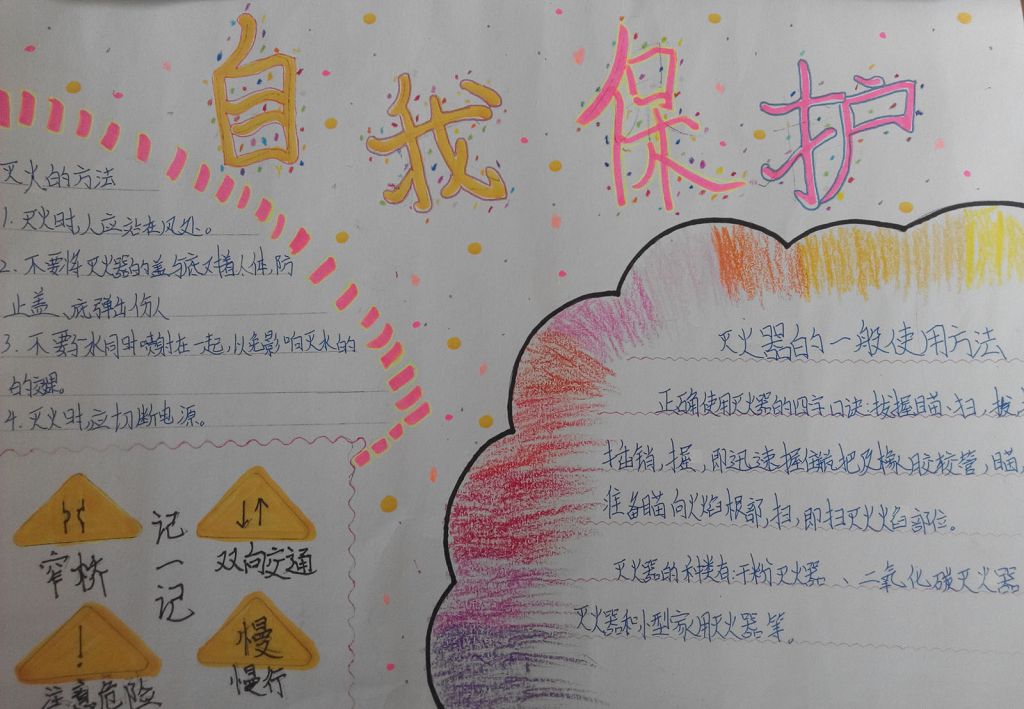 自我保护
灭火的方法
1. 灭火时,人应站在风处。
2. 不要将灭火器的盖与底对着人体,防
止盖、底弹出伤人
3. 不要与水同时喷射在一起,以免影响灭火的
的效果。
4. 灭火时应切断电源。
记一记
窄桥
双向交通
注意危险
慢
慢行
灭火器的一般使用方法
正确使用灭火器的四字口诀:拔、握、瞄、扫,拔
插销,握,即迅速握住瓶把及橡胶软管,瞄
准备瞄向火焰根部,扫,即扫灭火火焰部位。
灭火器的种类有:干粉灭火器、二氧化碳灭火器
灭火器和小型家用灭火器等。